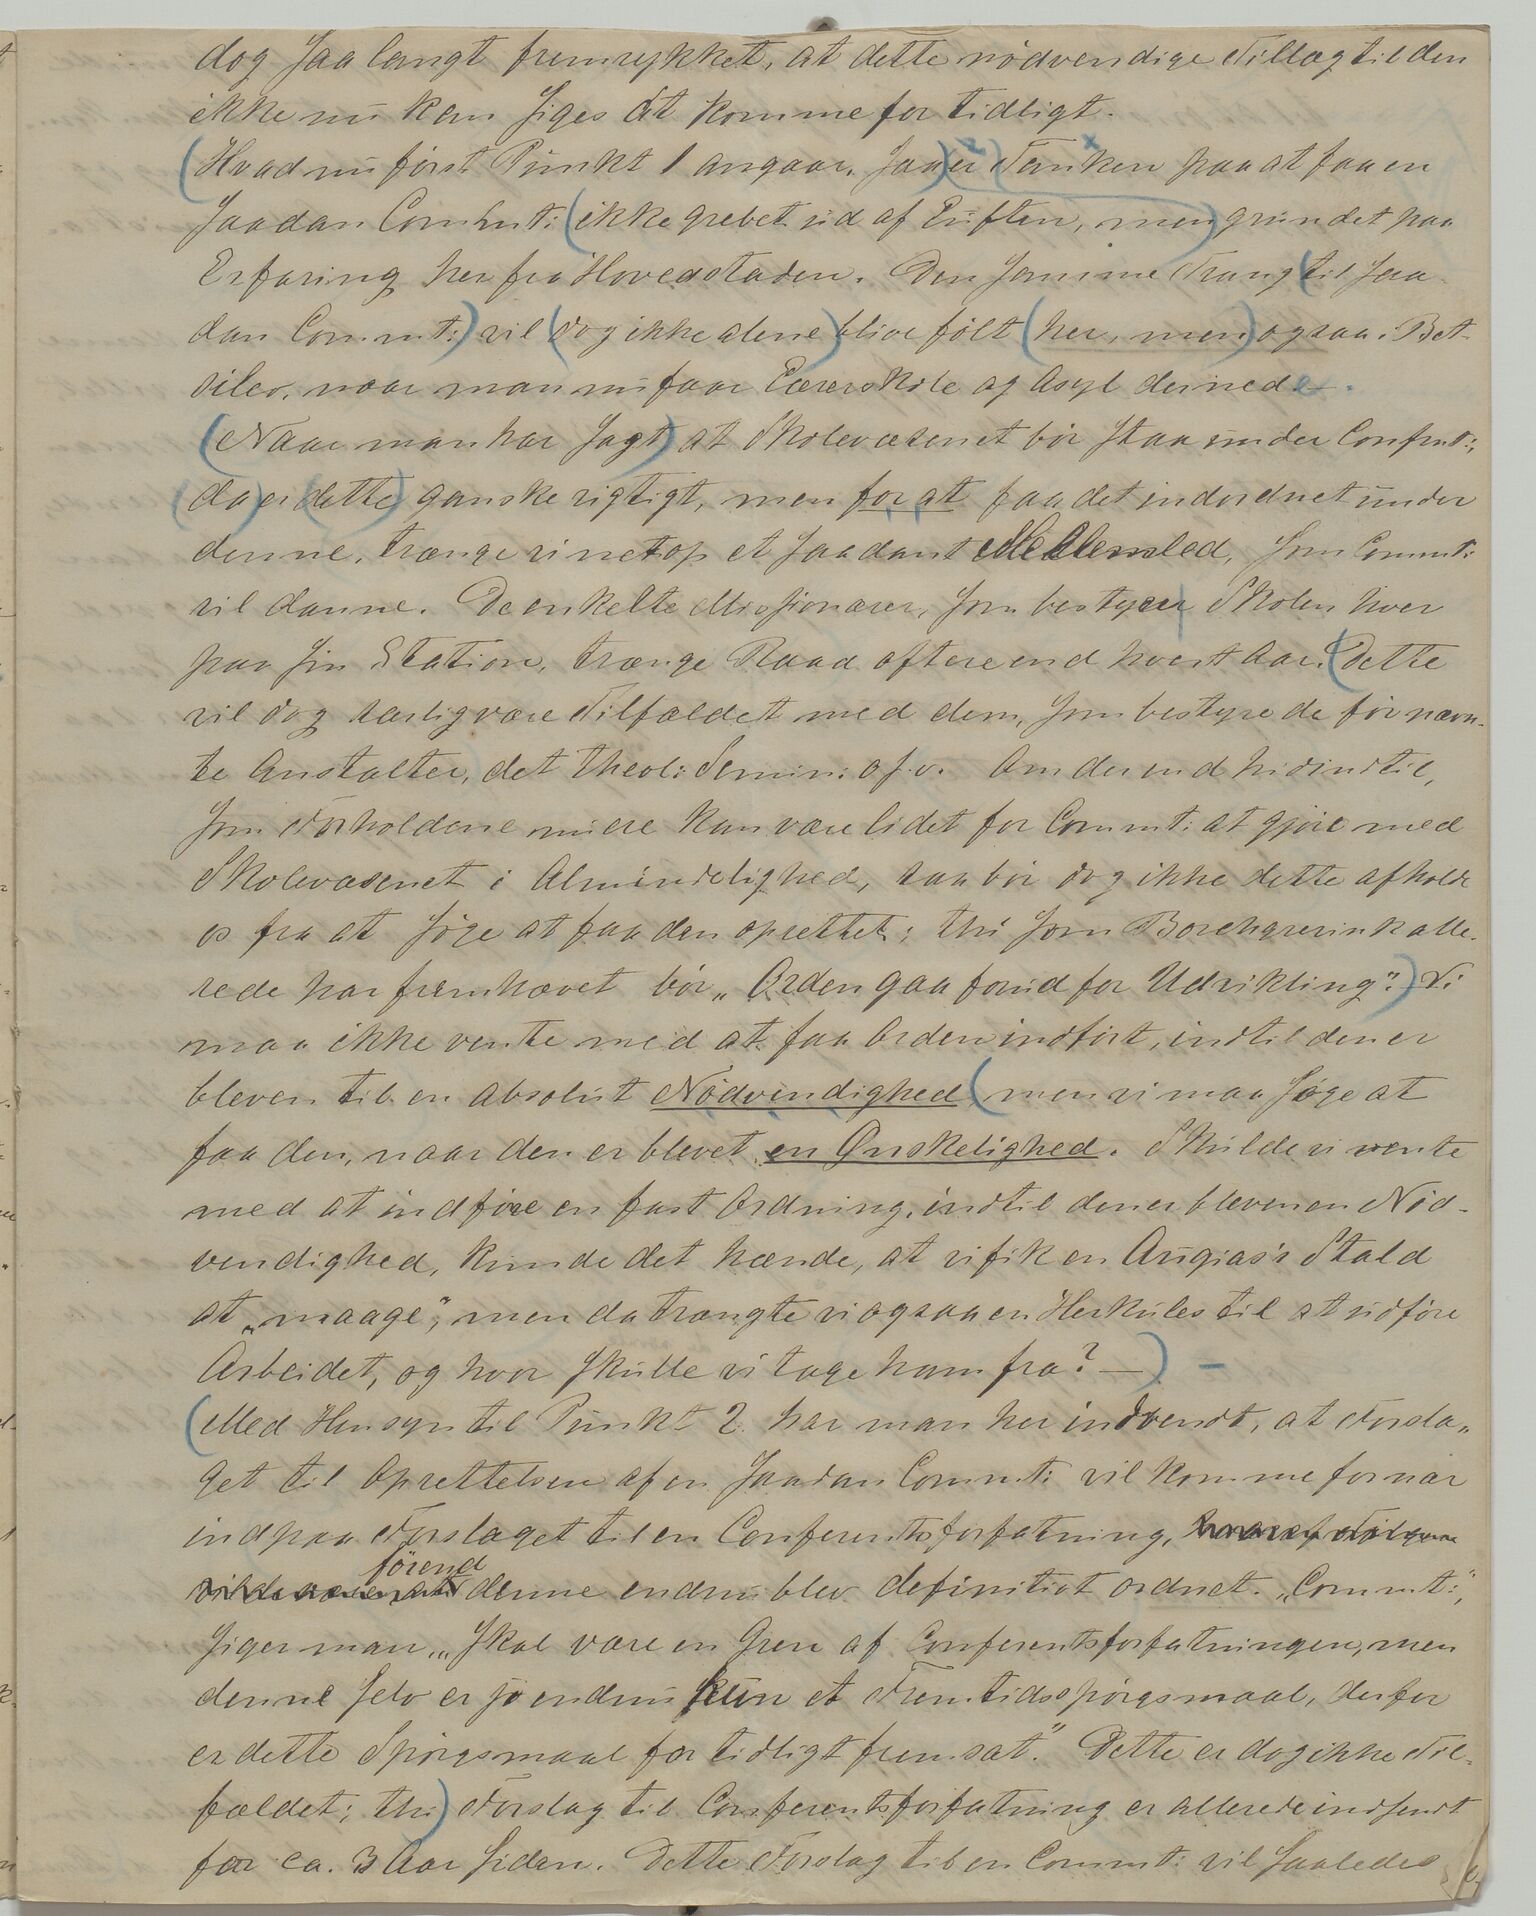 dog saa langt fremrykket, at dette nödvendige Tillæg til den
ikke nu kan siges at komme for tidligt.
(Hvad nu först Punkt 1 angaar, saa) er Tanken paa at faa en
saadan Commt: (ikke grebet ud af Luften, men) grundet paa
Erfaring her fra Hovedstaden. Den samme Trang (til saa-
dan Commt:) vil (dog ikke alene) blive fölt (her, men) ogsaa i Bet-
sileo, naar man nu faar Lærerskole og Asyl dernede.
(Naar man har sagt) at Skolevæsenet bör staa under Confnt:,
(da) er (dette) ganske rigtigt, men for at faa det indordnet under
denne, trænge vi netop et saadant Mellemled, som Commt:
vil danne. De enkelte Missionærer, som bestyrer Skolen hver
paa sin Station, trænge Raad oftere end hvert Aar. (Dette
vil dog særlig være Tilfældet med dem, som bestyre de för nævn-
te Anstalter, det theol: Semin: o. s. v. Om der end hidindtil,
som Forholdene nu ere kan være lidet for Commt: at gjöre med
Skolevæsenet i Almindelighed, saa bör dog ikke dette afholde
os fra at söge at faa den oprettet; thi som Borchgrevink alle-
rede har fremhævet bör „Orden gaa forud for Udvikling".) Vi
maa ikke vente med at faa Orden indfört, indtil den er
bleven til en absolut Nödvendighed (men vi maa söge at
faa den, naar den er blevet en Ønskelighed. Skulde vi vente
med at indföre en fast Ordning, indtil den er bleven en Nöd-
vendighed, kunde det hænde, at vi fik en Augias's Stald
at „maage", men da trængte vi ogsaa en Herkules til at udföre
Arbeidet, og hvor skulle vi tage ham fra? —) —
(Med Hensyn til Punkt 2 har man her indvendt, at Forsla-
get til Oprettelsen af en saadan Commt: vil komme for nær
ind paa Forslaget til en Conferentsforfatning,
förend
denne endnu blev definitivt ordnet. „Commt:",
siger man, „skal være en Gren af Conferentsforfatningen, men
denne selv er jo endnu kun et Fremtidsspörgsmaal, derfor
er dette Spörgsmaal for tidligt fremsat." Dette er dog ikke Til-
fældet; thi) Forslag til Conferentsforfatning er allerede indsendt
for ca. 3 Aar siden. Dette Forslag til en Commt: vil saaledes